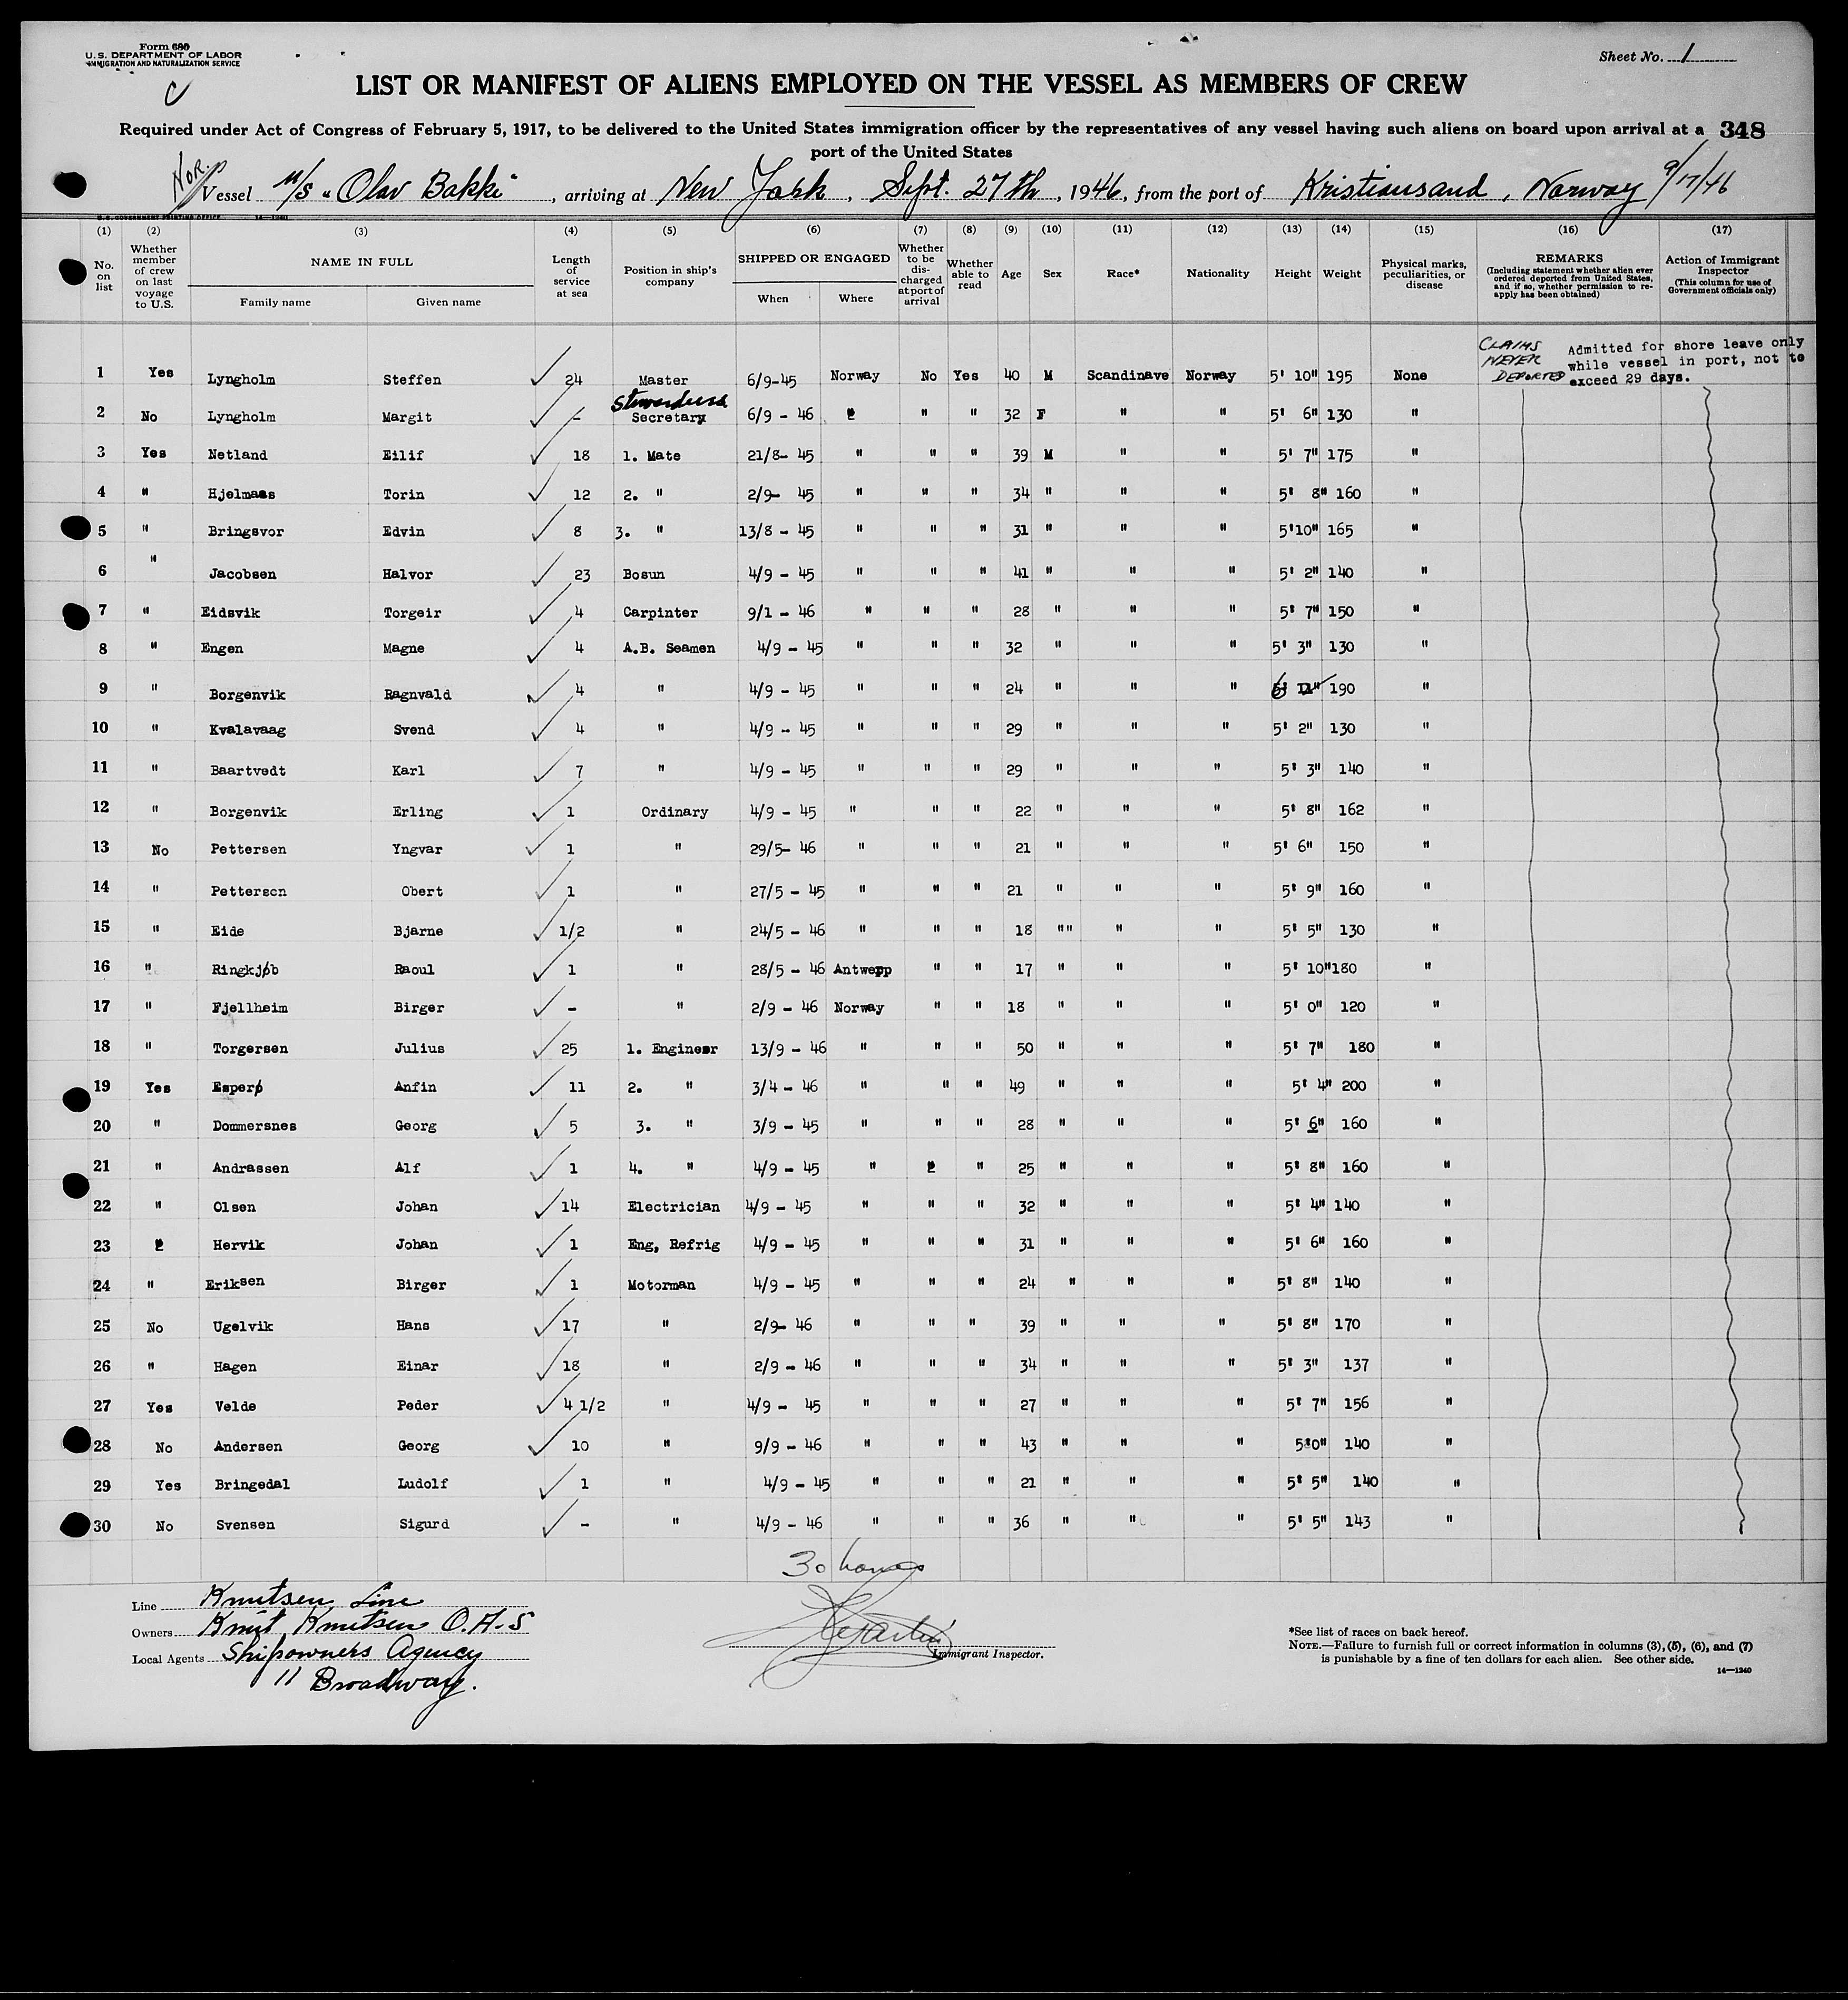 Form 680
U.S. DEPARTMENT OF LABOR
IMMIGRATION AND NATURALIZATION SERVICE
Sheet No. 1
LIST OR MANIFEST OF ALIENS EMPLOYED ON THE VESSEL AS MEMBERS OF CREW
Required under Act of Congress of February 5, 1917, to be delivered to the United States immigration officer by the representatives of any vessel having such aliens on board upon arrival at a 348
port of the United States
Nor. Vessel M/S "Olav Bakke", arriving at New York, Sept. 27th, 1946, from the port of Kristiansand, Norway 9/17/46
U.S. GOVERNMENT PRINTING OFFICE 14—1240
(1) (2) (3) (4) (5) (6) (7) (8) (9) (10) (11) (12) (13) (14) (15) (16) (17)
No. on list Whether member of crew on last voyage to U.S. NAME IN FULL Family name Given name Length of service at sea Position in ship's company SHIPPED OR ENGAGED When Where Whether to be discharged at port of arrival Whether able to read Age Sex Race* Nationality Height Weight Physical marks, peculiarities, or disease REMARKS (Including statement whether alien ever ordered deported from United States, and if so, whether permission to re-apply has been obtained) Action of Immigrant Inspector (This column for use of Government officials only)
CLAIMS NEVER DEPORTED Admitted for shore leave only while vessel in port, not to exceed 29 days.
1 Yes Lyngholm Steffen 24 Master 6/9-45 Norway No Yes 40 M Scandinave Norway 5' 10" 195 None
Stewardess
2 No Lyngholm Margit - Secretary 6/9 - 46 " " " 32 F " " 5' 6" 130 "
3 Yes Netland Eilif 18 1. Mate 21/8- 45 " " " 39 M " " 5' 7" 175 "
4 " Hjelmaas Torin 12 2. " 2/9- 45 " " " 34 " " " 5' 8" 160 "
5 " Bringsvor Edvin 8 3. " 13/8 - 45 " " " 31 " " " 5'10" 165 "
6 " Jacobsen Halvor 23 Bosun 4/9 - 45 " " " 41 " " " 5' 2" 140 "
7 " Eidsvik Torgeir 4 Carpinter 9/1 - 46 " " " 28 " " " 5' 7" 150 "
8 " Engen Magne 4 A.B. Seamen 4/9 - 45 " " " 32 " " " 5' 3" 130 "
9 " Borgenvik Ragnvald 4 " 4/9 - 45 " " " 24 " " " 190 "
10 " Kvalavaag Svend 4 " 4/9 - 45 " " " 29 " " " 5' 2" 130 "
11 " Baartvedt Karl 7 " 4/9 - 45 " " " 29 " " " 5' 3" 140 "
12 " Borgenvik Erling 1 Ordinary 4/9 - 45 " " " 22 " " " 5' 8" 162 "
13 No Pettersen Yngvar 1 " 29/5- 46 " " " 21 " " " 5' 6" 150 "
14 " Pettersen Obert 1 " 27/5 - 45 " " " 21 " " " 5' 9" 160 "
15 " Eide Bjarne 1/2 " 24/5 - 46 " " " 18 "" " " 5' 5" 130 "
16 " Ringkjøb Raoul 1 " 28/5 - 46 Antwepp " " 17 " " " 5' 10" 180 "
17 " Fjellheim Birger - " 2/9 - 46 Norway " " 18 " " " 5' 0" 120 "
18 " Torgersen Julius 25 1. Engineer 13/9 - 46 " " " 50 " " " 5' 7" 180 "
19 Yes Esperø Anfin 11 2. " 3/4 - 46 " " " 49 " " " 5' 4" 200 "
20 " Dommersnes Georg 5 3. " 3/9 - 45 " " " 28 " " " 5' 6" 160 "
21 " Andrassen Alf 1 4. " 4/9 - 45 " " " 25 " " " 5' 8" 160 "
22 " Olsen Johan 14 Electrician 4/9 - 45 " " " 32 " " " 5' 4" 140 "
23 " Hervik Johan 1 Eng, Refrig 4/9 - 45 " " " 31 " " " 5' 6" 160 "
24 " Eriksen Birger 1 Motorman 4/9 - 45 " " " 24 " " " 5' 8" 140 "
25 No Ugelvik Hans 17 " 2/9- 46 " " " 39 " " " 5' 8" 170 "
26 " Hagen Einar 18 " 2/9 - 46 " " " 34 " " " 5' 3" 137 "
27 Yes Velde Peder 4 1/2 " 4/9 - 45 " " " 27 " " " 5' 7" 156 "
28 No Andersen Georg 10 " 9/9 - 46 " " " 43 " " " 5'0" 140 "
29 Yes Bringedal Ludolf 1 " 4/9 - 45 " " " 21 " " " 5' 5" 140 "
30 No Svensen Sigurd - " 4/9 - 46 " " " 36 " " " 5' 5" 143 "
30
Line Knutsen Line
Owners Knut Knutsen O.A.S
Local Agents Shipowners Agency
11 Broadway.
Immigrant Inspector.
*See list of races on back hereof.
NOTE.—Failure to furnish full or correct information in columns (3), (5), (6), and (7)
is punishable by a fine of ten dollars for each alien. See other side.
14—1240